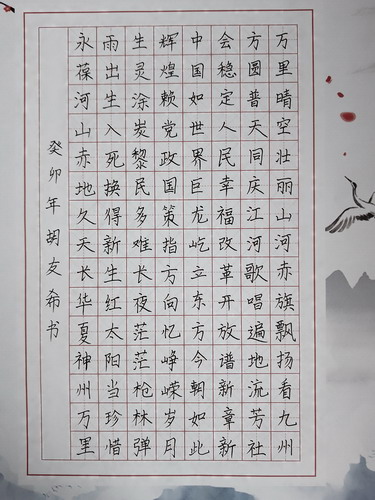 万里晴空壮丽山河赤旗飘扬看九州
方圆普天同庆江河歌唱遍地流芳社
会稳定人民幸福改革开放谱新章新
中国如世界巨龙屹立东方今朝如此
辉煌赖党政国策指方向忆峥嵘岁月
生灵涂炭黎民多难长夜茫茫枪林弹
雨出生入死换得新生红太阳当珍惜
永葆河山赤地久天长华夏神州万里
癸卯年胡友希书